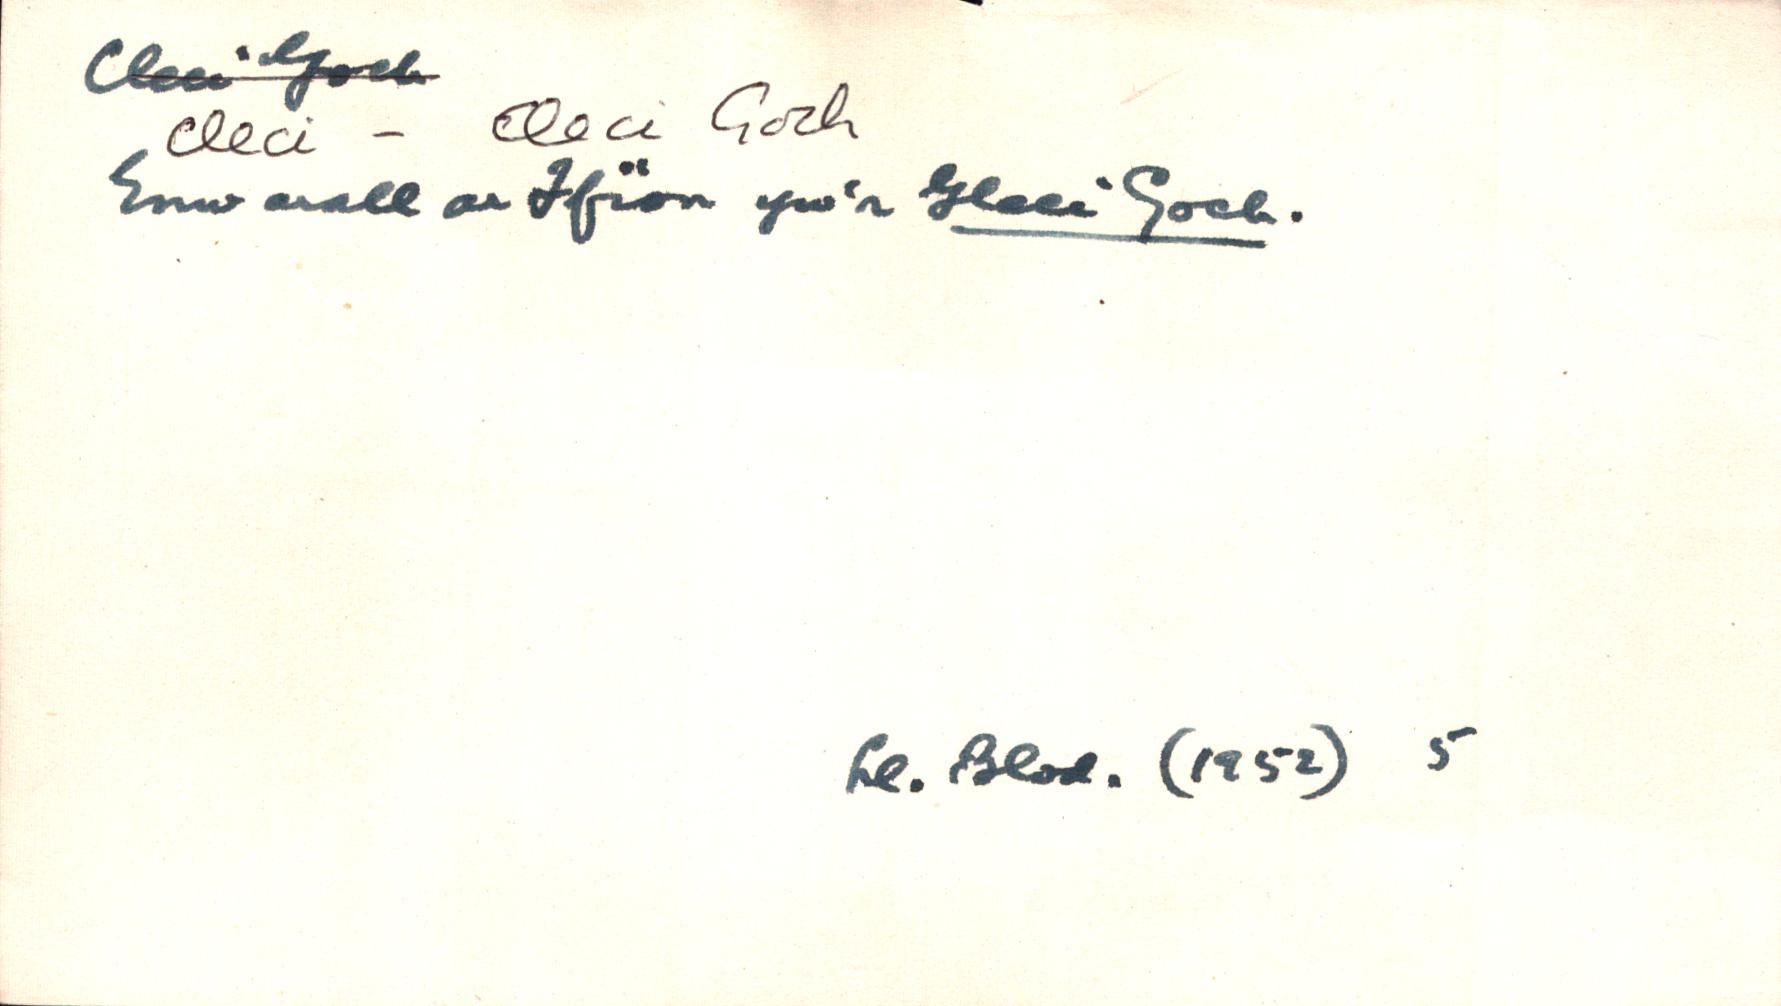 Cleci Goch
cleci - Cleci Goch
Enw arall ar Ifïon yw'r Gleci Goch.
Ll. Blod. (1952) 5